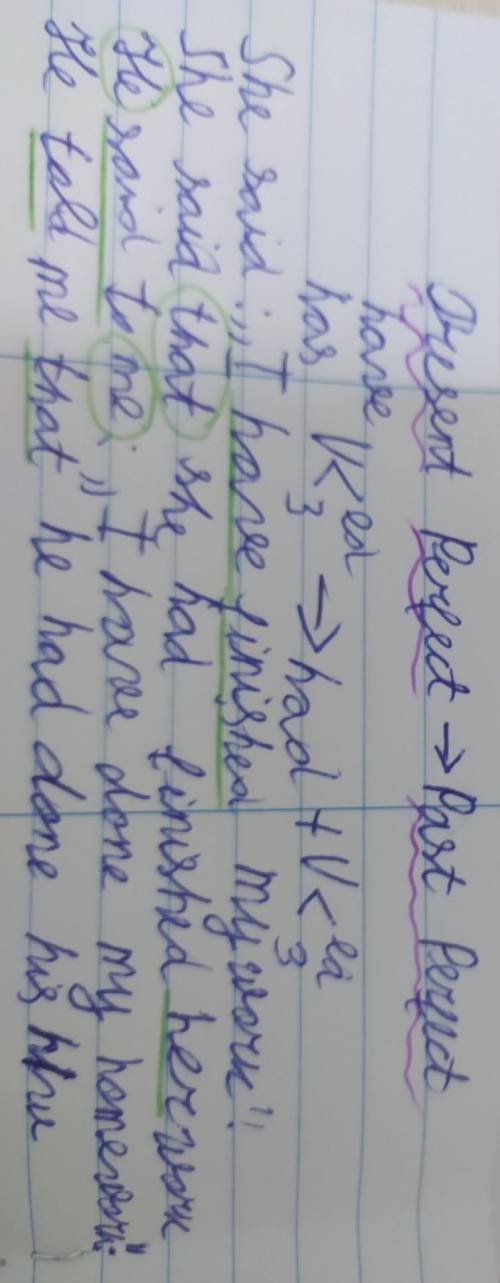 Present Perfect → Past Perfect
have
has V<ed 3 → had + V<ed 3
She said: „I have finished my work".
She said that she had finished her work
He said to me: „I have done my homework".
He told me that he had done his h/w